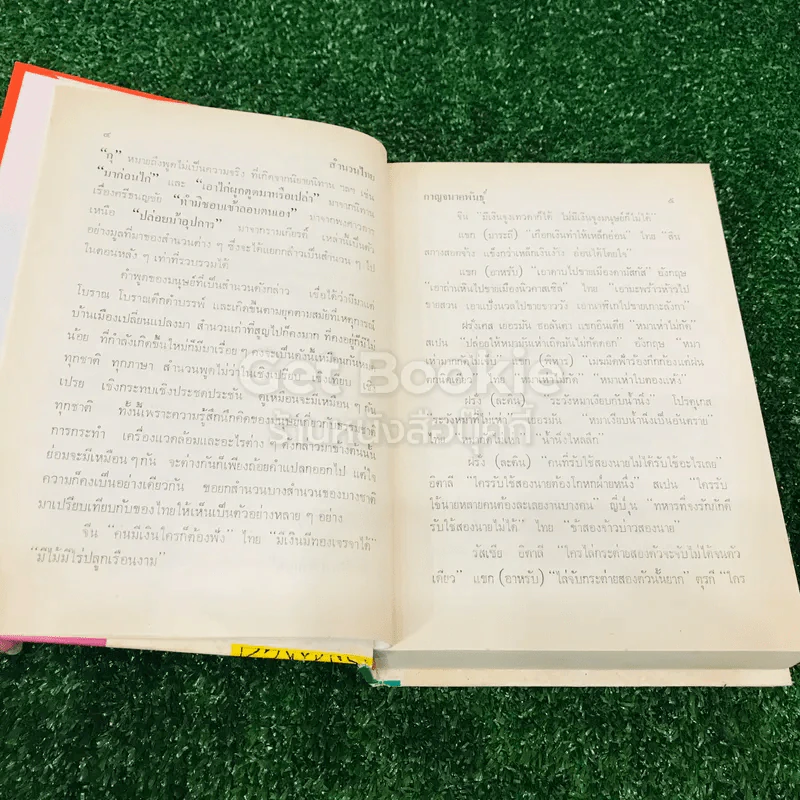 ๔
สำนวนไทย
"กุ" หมายถึงพูดไม่เป็นความจริง ที่เกิดจากนิยายนิทาน ฯลฯ เช่น
"มาก่อนไก่" และ "เอาไก่ผูกตูดมาหรือเปล่า" มาจากนิทาน
เรื่องศรีธนญชัย "ทำมิชอบเข้าลอบตนเอง" มาจากพงศาวดาร
เหนือ "ปล่อยม้าอุปการ" มาจากรามเกียรติ์ เหล่านี้เป็นตัว
อย่างมูลที่มาของสำนวนต่าง ๆ ซึ่งจะได้แยกกล่าวเป็นสำนวน ๆ ไป
ในตอนหลัง ๆ เท่าที่รวบรวมได้
คำพูดของมนุษย์ที่เป็นสำนวนดังกล่าว เชื่อได้ว่ามีมาแต่
โบราณ โบราณดึกดำบรรพ์ และเกิดขึ้นตามยุคตามสมัยที่เหตุการณ์
บ้านเมืองเปลี่ยนแปลงมา สำนวนเก่าที่สูญไปก็คงมาก ที่คงอยู่ก็มีไม่
น้อย ที่กำลังเกิดขึ้นใหม่ก็มีมาเรื่อย ๆ คงจะเป็นดังนี้เหมือนกันหมด
ทุกชาติ ทุกภาษา สำนวนพูดไม่ว่าในเชิงเปรียบ เชิงเทียบ เชิง
เปรย เชิงกระทบเชิงประชดประชัน ดูเหมือนจะมีเหมือน ๆ กัน
ทุกชาติ ทั้งนี้เพราะความรู้สึกนึกคิดของมนุษย์เกี่ยวกับ
การกระทำ เครื่องแวดล้อมและอะไรต่าง ๆ ดังกล่าวมาข้างต้นนั้น
ย่อมจะมีเหมือน ๆ กัน จะต่างกันก็เพียงถ้อยคำแปลกออกไป แต่ใจ
ความก็คงเป็นอย่างเดียวกัน ขอยกสำนวนบางสำนวนของบางชาติ
มาเปรียบเทียบกับของไทยให้เห็นเป็นตัวอย่างหลาย ๆ อย่าง
จีน "คนมีเงินใครก็ต้องฟัง" ไทย "มีเงินมีทองเจรจาได้
มีไม้มีไร่ปลูกเรือนงาม"
กาญจนาคพันธุ์
๕
จีน "มีเงินจูงเทวดาก็ได้ ไม่มีเงินจูงมนุษย์ก็ไม่ได้"
แขก (ปาระสี) "เกือกเงินทำให้เหล็กอ่อน" ไทย "สิน
สกางสอดจ้าง แข็งกว่าเหล็กเงินง้าง อ่อนได้ดอยใจ"
แขก (อาหรับ) "เอาดาบไปขายเมืองดามัสกัส" อังกฤษ
"เอาถ่านหินไปขายเมืองนิวคาสเซิล" ไทย "เอามะพร้าวห้าวไป
ขายสวน เอาแป้งนวลไปขายชาววัง เอานาฬิเกไปขายเกาะลังกา"
ฝรั่งเศส เยอรมัน ฮอลันดา แขกอินเดีย "หมาเห่าไม่กัด"
สเปน อังกฤษ "หมา
(พิหาร)
ไทย "หมาเห่าใบตองแห้ง"
ฝรั่ง (ละติน) "ระวังหมาเงียบกับน้ำนิ่ง" โปรตุเกส
เยอรมัน "หมาเงียบน้ำนิ่งเป็นอันตราย"
"น้ำนิ่งไหลลึก"
ฝรั่ง (ละติน) "คนที่รับใช้สองนายไม่ได้รับใช้อะไรเลย"
อิตาลี "ใครรับใช้สองนายต้องโกหกฝ่ายหนึ่ง" สเปน "ใครรับ
ใช้นายหลายคนต้องละเลยงานบางคน" ญี่ปุ่น "ทหารที่จงรักภักดี
รับใช้สองนายไม่ได้" ไทย "ข้าสองจ้าวบ่าวสองนาย"
รัสเซีย อิตาลี "ใครไล่กระต่ายสองตัวจะจับไม่ได้จนตัว
เดียว" แขก (อาหรับ) "ไล่จับกระต่ายสองตัวนั้นยาก" ตุรกี "ใคร
Get Bookie
ร้านหนังสือบุ๊คกี้